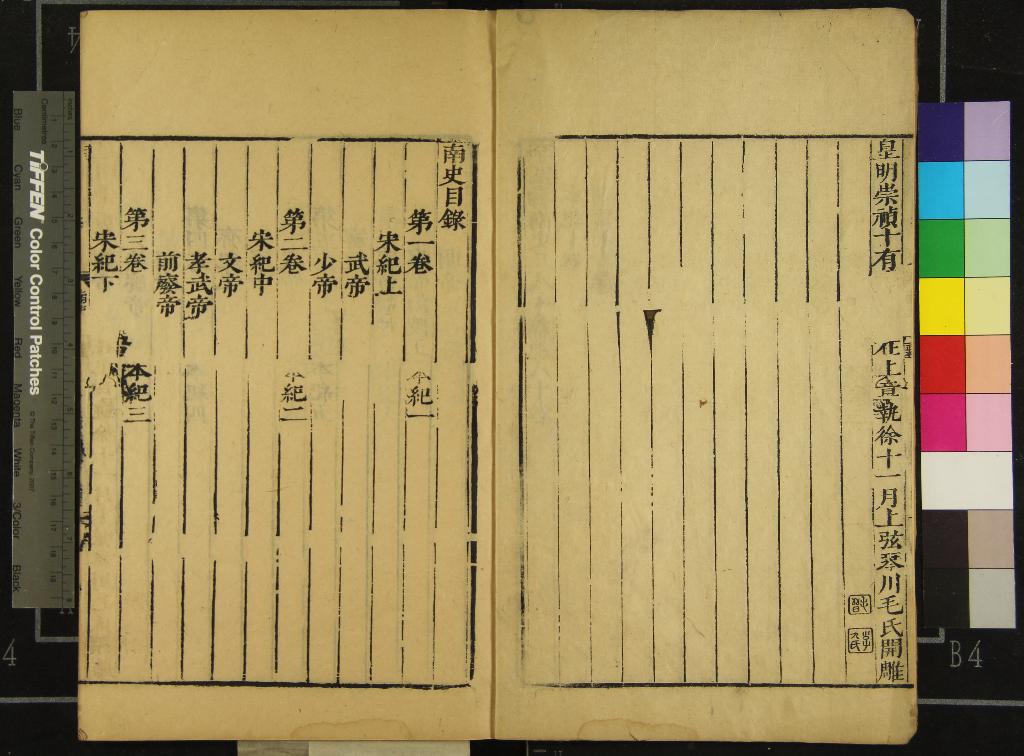 皇明崇禎十有
在上章執徐十一月上弦琴川毛氏開雕
南史目錄
第一卷
本紀一
宋紀上
武帝
少帝
第二卷
本紀二
宋紀中
文帝
孝武帝
前廢帝
第三卷
本紀三
宋紀下
inches
Centimetres
TIFFEN Color Control Patches
© The Tiffen Company, 2007
Blue
Cyan
Green
Yellow
Red
Magenta
White
3/Color
Black
4
4
B4